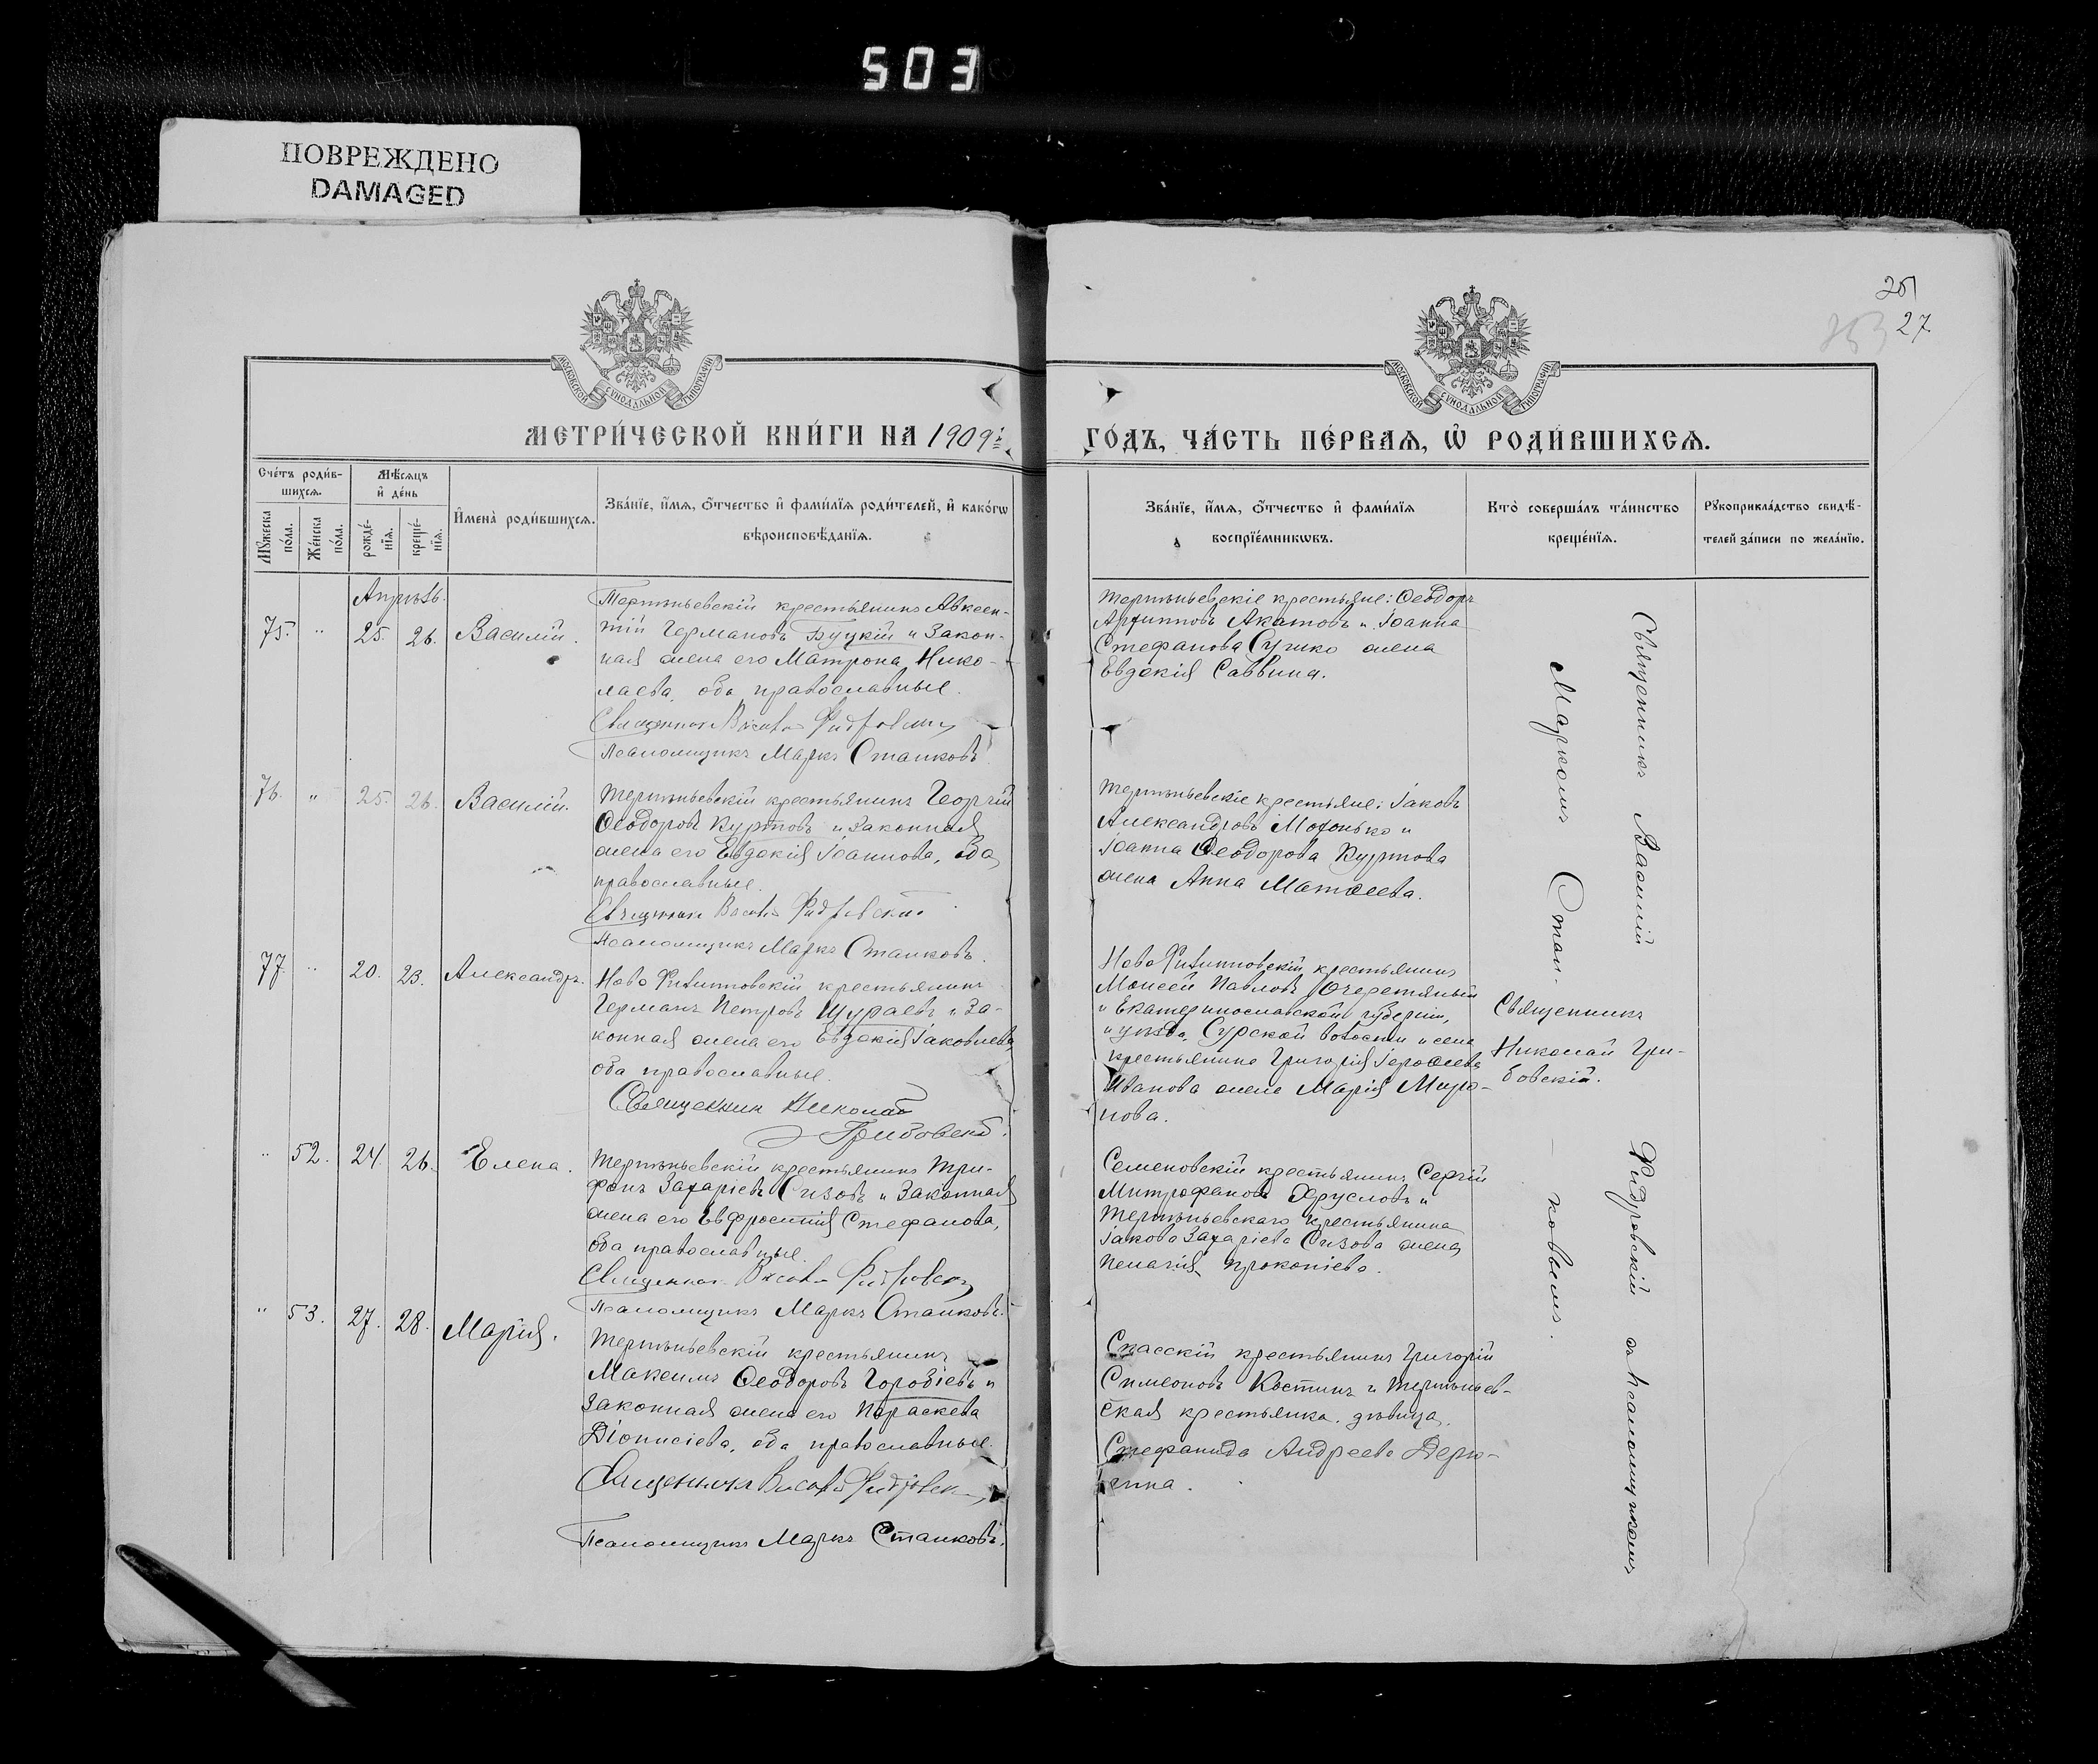 503
ПОВРЕЖДЕНО
DAMAGED
251
253
27.
МОСКОВСКОЙ СѴНОДАЛЬНОЙ ТИПОГРАФІИ
МОСКОВСКОЙ СѴНОДАЛЬНОЙ ТИПОГРАФІИ
МЕТРИ́ЧЕСКОЙ КНИ́ГИ НА 1909й
ГО́ДЪ, ЧА́СТЬ ПЕ́РВАѦ, Ѡ РОДИ́ВШИХСѦ.
Сче́тъ роди́в-
шихсѧ.
Мѹ́жеска по́ла.
Же́нска по́ла.
Мѣ́сѧцъ
и҆ де́нь
рожде́-
нїѧ.
креще́-
нїѧ.
И҆мена̀ роди́вшихсѧ.
Зва́нїе, и҆́мѧ, ѻ҆́тчество и҆ фами́лїѧ роди́телей, и҆ како́гѡ
вѣроисповѣ́данїѧ.
Зва́нїе, и҆́мѧ, ѻ҆́тчество и҆ фами́лїѧ
воспрїе́мникѡвъ.
Кто̀ соверша́лъ та́инство
креще́нїѧ.
Рꙋкоприкла́дство свидѣ́-
телей за́писи по жела́нїю.
Апрѣль.
75. " 25. 26. Василій.
Тертьньевскій крестьянинъ Авксен-
тій Германовъ Буцкій и закон-
ная жена его Матрона Нико-
лаева, оба православные.
Священникъ Василій Фидровскій
Псаломщикъ Маркъ Станковъ
Крестьяне: Ѳеодоръ
Архиповъ Акатовъ и Іоанна
Стефанова Сучко жена
Евдокія Саввина.
76. " 25. 26. Василій.
крестьянинъ Георгій
Ѳеодоровъ Куртовъ и законная
жена его Евдокія Іоаннова, оба
православные.
Священникъ Василій Фидровскій
Псаломщикъ Маркъ Станковъ.
крестьяне: Іаковъ
Александровъ Мохонько и
Іоанна Ѳеодорова Куртова
жена Анна Матѳеева.
77. " 20. 23. Александръ.
Ново Филипповскій крестьянинъ
Германъ Петровъ Шураевъ и за-
конная жена его Евдокія Іаковлева,
оба православные.
Священник Николай
Грибовскій.
Ново Филипповскій крестьянинъ
Моисей Павловъ Очеретяный
и Екатеринославской губерніи,
и уѣзда, Сурской волости и села
крестьянина Григорія Іероѳеева
Иванова жена Марія Миро-
нова.
Священникъ
Николай Гри-
бовскій.
" 52. 24. 26. Елена.
крестьянинъ Три-
фонъ Захаріевъ Сизовъ и законная
жена его Евфросинія Стефанова,
оба православные.
Священникъ Василій Фидровскій
Псаломщикъ Маркъ Станковъ.
Семеновскій крестьянинъ Сергій
Митрофановъ Хрусловъ и
крестьянина
Іакова Захаріева Сизова жена
Пелагія Прокопіева.
" 53. 27. 28. Марія.
крестьянинъ
Максимъ Ѳеодоровъ Горобіевъ и
законная жена его Параскева
Діонисіева, оба православные.
Священникъ Василій Фидровскій
Псаломщикъ Маркъ Станковъ.
Спасскій крестьянинъ Григорій
Симеоновъ Костинъ и
ская крестьянка, дѣвица,
Стефанида Андреева Дерю-
гина.
Священникъ Василій Фидровскій съ псаломщикомъ
Маркомъ Стан-ковымъ.